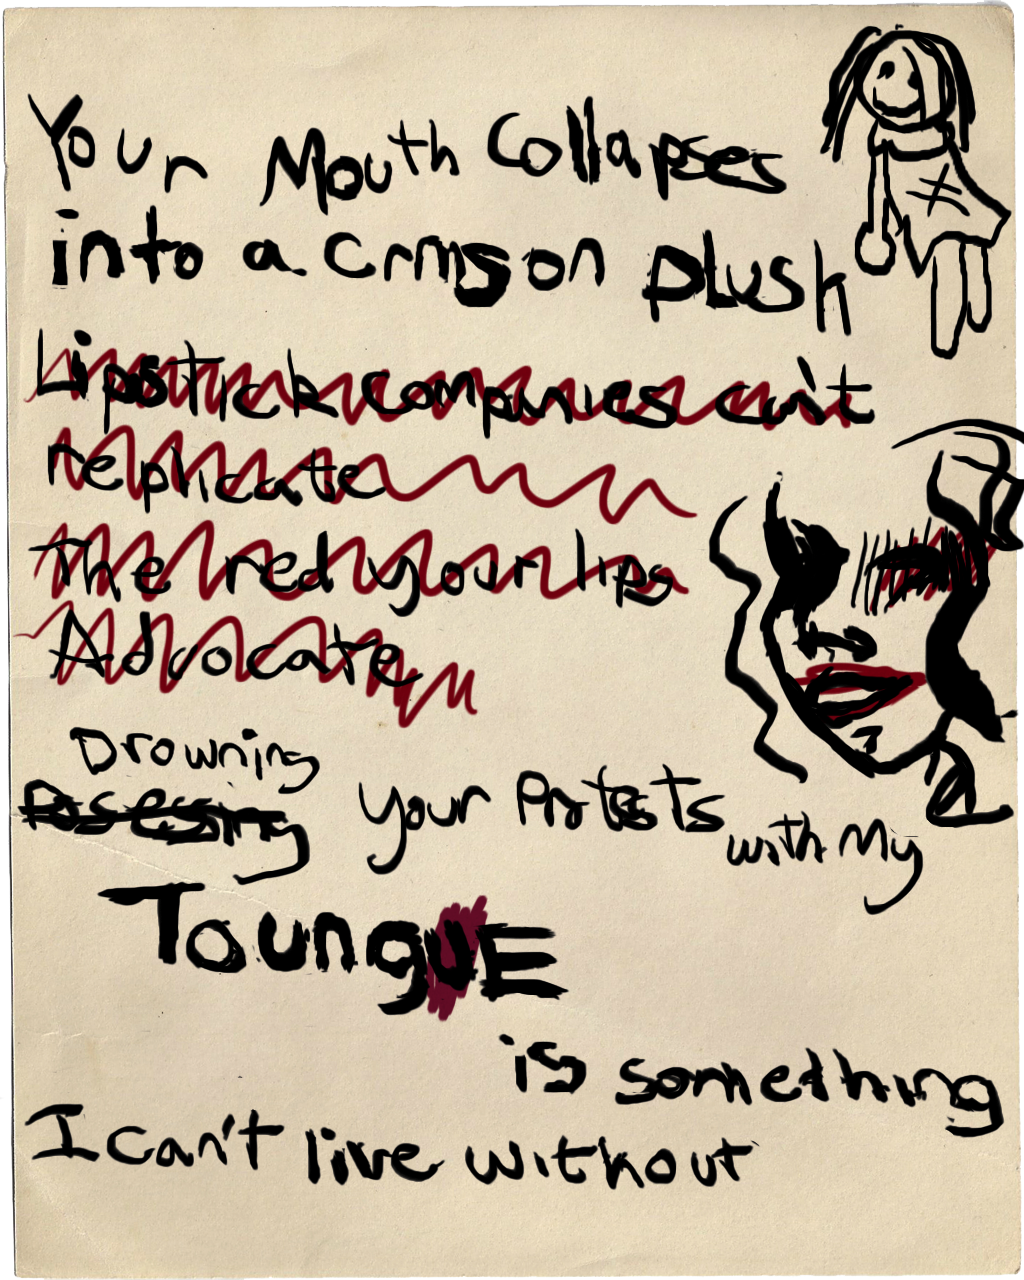 Your Mouth Collapses
into a crmson plush
Lipstick companies can't
replicate
The red your lips
Advocate
Drowning
Posessing your Protests with My
ToungUE
is something
I can't live without